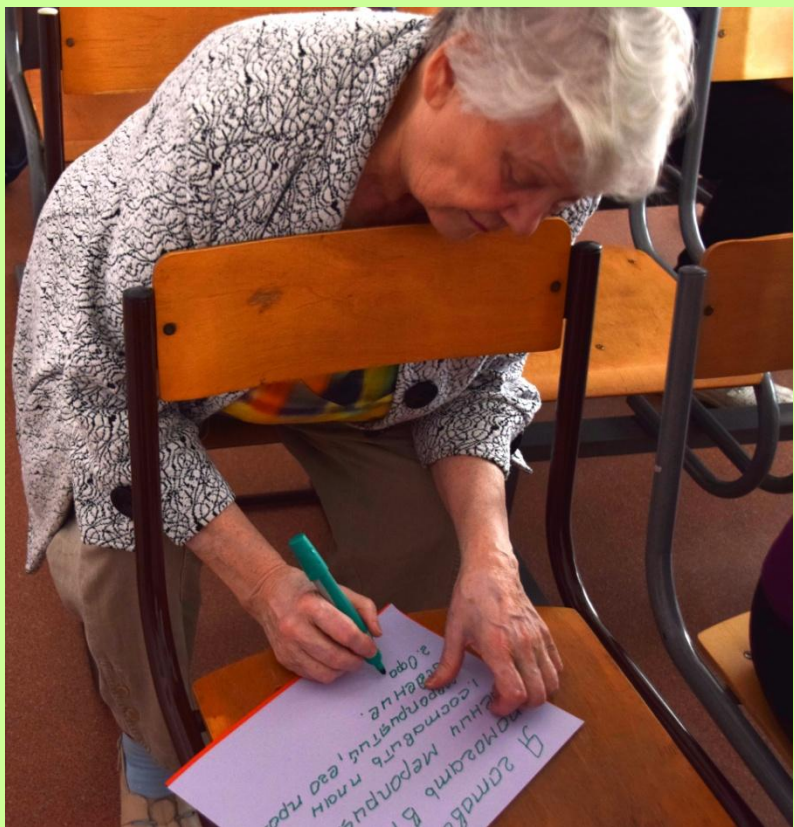 Я готова
помогать в
мероприя
1. составить план
мероприятий, его про
ведение.
2. Офо